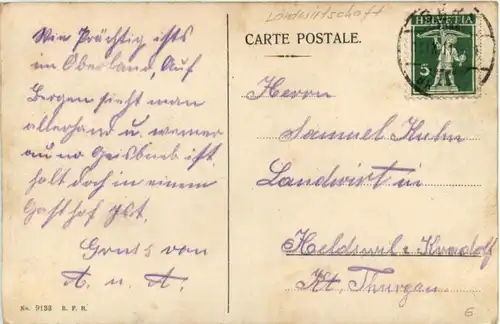 Landwirtschaft
CARTE POSTALE.
HELVETIA
5
Wie Prächtig ists
im Oberland, Auf
Bergen sieht man
allerhand u, wenner
au no Geisbueb ist
halt doch in einem
Gasthof
Gruss von
A. u. A.
Herrn
Samuel Kuhn
Landwirt in
Heldswil: Kradolf
Kt. Thurgau
No. 9133 B. F. R.
6